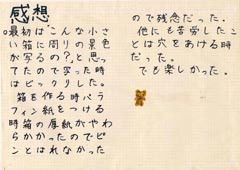 感想
最初は「こんな小さ
い箱に周りの景色
が写るの?」と思っ
てたので写った時
はビックリした。
箱を作る時パラ
フィン紙をつける
時箱の厚紙がやわ
らかかったのでピ
ンとはれなかった
ので残念だった。
他にも苦労したこ
とは穴をあける時
だった。
でも楽しかった。